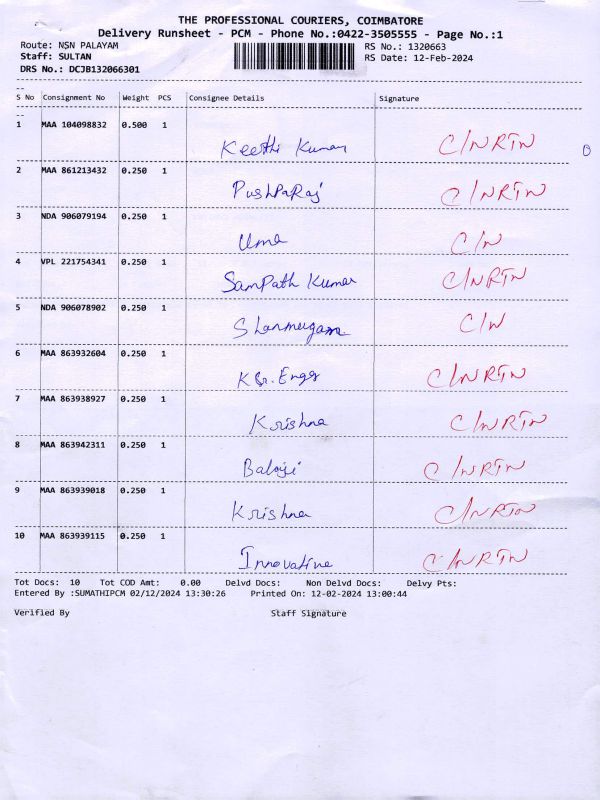 THE PROFESSIONAL COURIERS, COIMBATORE
Delivery Runsheet - PCM - Phone No.:0422-3505555 - Page No.:1
Route: NSN PALAYAM RS No.: 1320663
Staff: SULTAN RS Date: 12-Feb-2024
DRS No.: DCJB132066301
S No Consignment No Weight PCS Consignee Details Signature
1 MAA 104098832 0.500 1 Keethi Kumar C/NRTN
2 MAA 861213432 0.250 1 PushPaRaj C/NRTN
3 NDA 906079194 0.250 1 Uma C/N
4 VPL 221754341 0.250 1 SamPath Kumar C/NRTN
5 NDA 906078902 0.250 1 Shanmugam C/N
6 MAA 863932604 0.250 1 Engg C/NRTN
7 MAA 863938927 0.250 1 Krishna C/NRTN
8 MAA 863942311 0.250 1 Balaji C/NRTN
9 MAA 863939018 0.250 1 Krishna C/NRTN
10 MAA 863939115 0.250 1 Innovative C/NRTN
Tot Docs: 10 Tot COD Amt: 0.00 Delvd Docs: Non Delvd Docs: Delvy Pts:
Entered By :SUMATHIPCM 02/12/2024 13:30:26 Printed On: 12-02-2024 13:00:44
Verified By Staff Signature